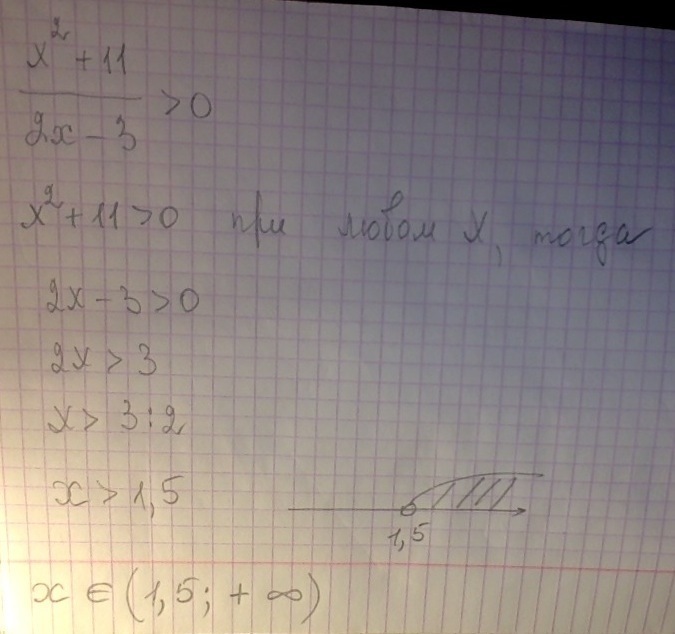 x² + 11
2x - 3
> 0
x² + 11 > 0 при любом x, тогда
2x - 3 > 0
2x > 3
x > 3 : 2
x > 1,5
1,5
x ∈ (1,5; + ∞)